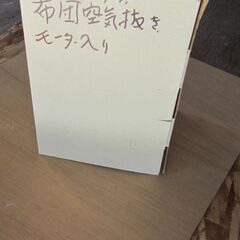 布団空気抜き
モーター入り